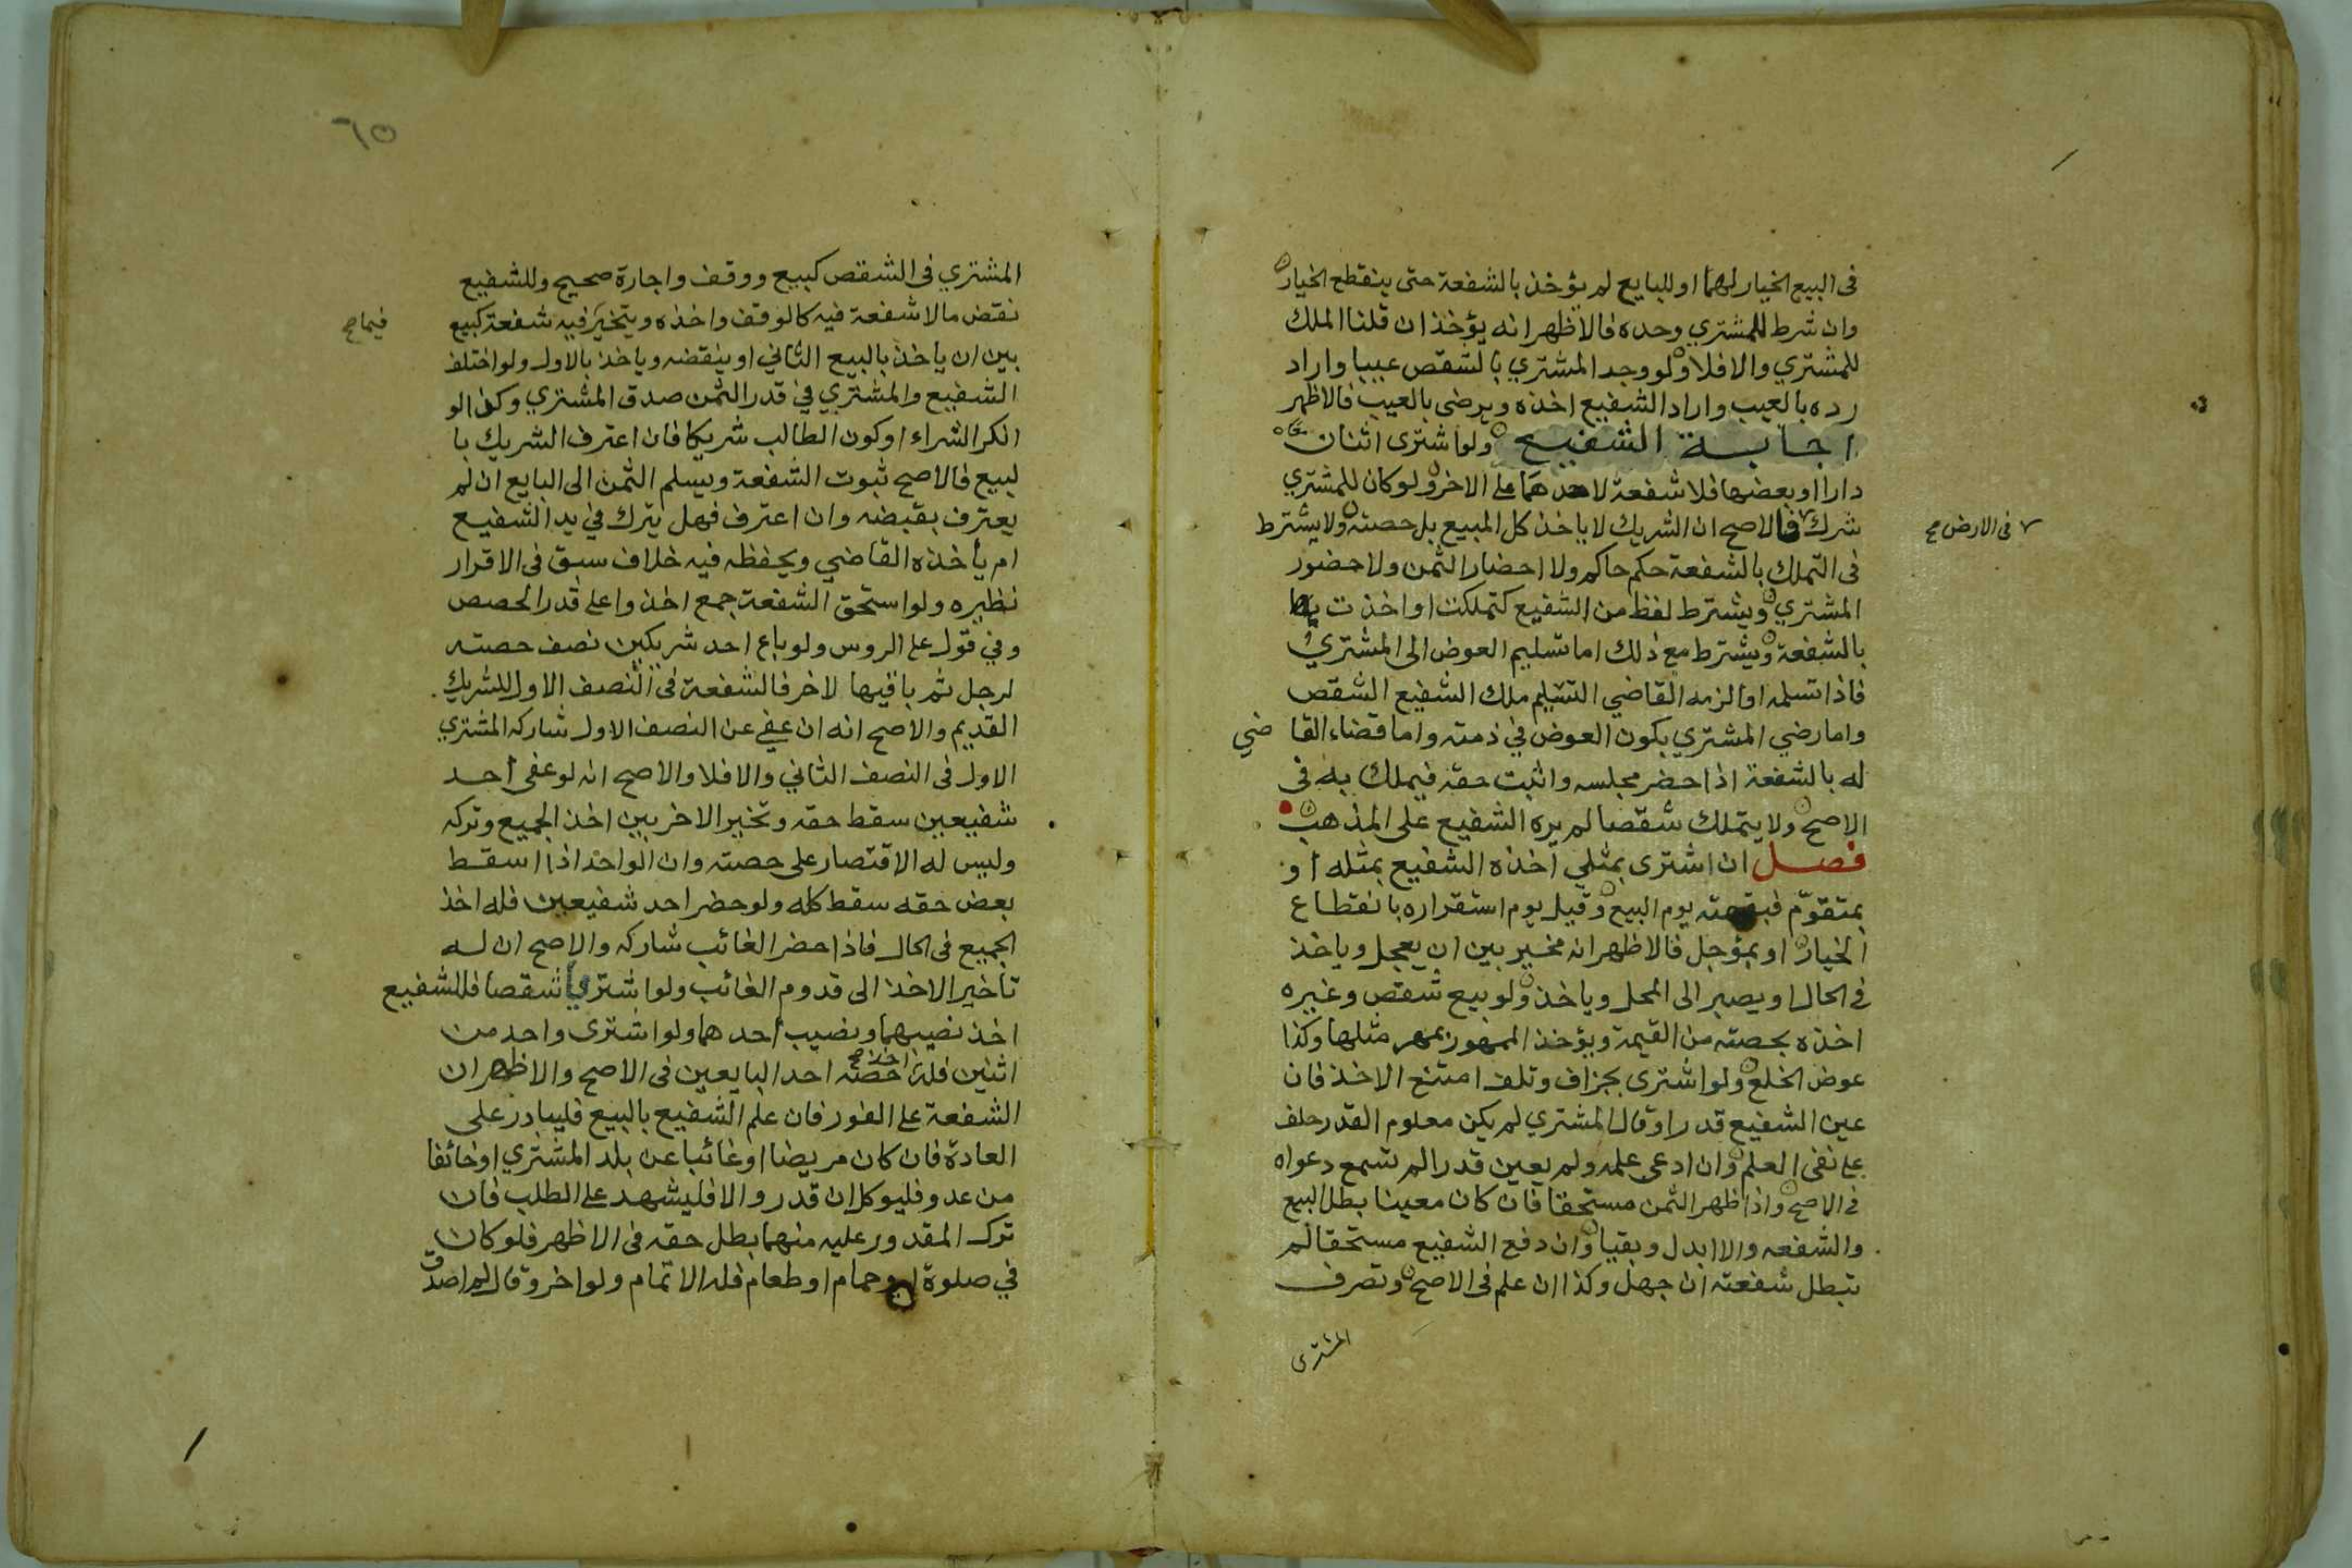 فى البيع الخيار لهما او للبايع لم يؤخذ بالشفعة حتى ينقطع الخيار
وان شرط للمشتري وحده فالاظهر انه يؤخذ ان قلنا الملك
للمشتري والا فلا ولو وجد المشتري بالشقص عيبا واراد
رده بالعيب واراد الشفيع اخذه ويرضى بالعيب فالاظهر
اجابة الشفيع ولو اشترى اثنان معًا
دارا او بعضها فلا شفعة لاحدهما على الاخر ولو كان للمشتري
شرك فالاصح ان الشريك لا ياخذ كل المبيع بل حصته ولا يشترط
فى الارض صح
فى التملك بالشفعة حكم حاكم ولا احضار الثمن ولا حضور
المشتري ويشترط لفظ من الشفيع كتملكت او اخذت
بالشفعة ويشترط مع ذلك اما تسليم العوض الى المشتري
فاذا تسلمه او الزمه القاضي التسليم ملك الشفيع الشقص
واما رضي المشتري بكون العوض في ذمته واما قضاء القاضي
له بالشفعة اذا حضر مجلسه واثبت حقه فيملك به فى
الاصح ولا يتملك شقصا لم يره الشفيع على المذهب
فصل ان اشترى بمثلي اخذه الشفيع بمثله او
بمتقوّم فبقيمته يوم البيع وقيل يوم استقراره بانقطاع
الخيار او بمؤجل فالاظهر انه مخير بين ان يعجل وياخذ
في الحال او يصبر الى المحل وياخذ ولو بيع شقص وغيره
اخذه بحصته من القيمة ويؤخذ الممهور بمهر مثلها وكذا
عوض الخلع ولو اشترى بجزاف وتلف امتنع الاخذ فان
عين الشفيع قدرا وقال المشتري لم يكن معلوم القدر حلف
على نفى العلم وان ادعى علمه ولم يعين قدرا لم تسمع دعواه
في الاصح واذا ظهر الثمن مستحقا فان كان معينا بطل البيع
والشفعه والا ابدل وبقيا وان دفع الشفيع مستحقا لم
تبطل شفعته ان جهل وكذا ان علم فى الاصح وتصرف
المشترى
٦٥
المشتري فى الشقص كبيع ووقف واجارة صحيح وللشفيع
نقض ما لا شفعة فيه كالوقف واخذه ويتخير فيه شفعة كبيع
فيما صح
بين ان ياخذ بالبيع الثاني او ينقضه وياخذ بالاول ولو اختلف
الشفيع والمشتري في قدر الثمن صدق المشتري وكذا لو
انكر الشراء او كون الطالب شريكا فان اعترف الشريك با
لبيع فالاصح ثبوت الشفعة ويسلم الثمن الى البايع ان لم
يعترف بقبضه وان اعترف فهل يترك في يد الشفيع
ام يأخذه القاضي ويحفظه فيه خلاف سبق فى الاقرار
نظيره ولو استحق الشفعة جمع اخذوا على قدر الحصص
وفي قول على الروس ولو باع احد شريكين نصف حصته
لرجل ثم باقيها لاخر فالشفعة فى النصف الاول للشريك
القديم والاصح انه ان عفى عن النصف الاول شاركه المشتري
الاول فى النصف الثاني والا فلا والاصح انه لو عفى أحد
شفيعين سقط حقه وتخير الاخر بين اخذ الجميع وتركه
وليس له الاقتصار على حصته وان الواحد اذا اسقط
بعض حقه سقط كله ولو حضر احد شفيعين فله اخذ
الجميع فى الحال فاذا حضر الغائب شاركه والاصح ان له
تأخير الاخذ الى قدوم الغائب ولو اشتريا شقصا فللشفيع
اخذ نصيبهما ونصيب أحدهما ولو اشترى واحد من
اثنين فله اخذ صح حصته احد البايعين فى الاصح والاظهر ان
الشفعة على الفور فان علم الشفيع بالبيع فليبادر على
العادة فان كان مريضا او غائبا عن بلد المشتري او خائفا
من عدو فليوكل ان قدر والا فليشهد على الطلب فان
ترك المقدور عليه منهما بطل حقه فى الاظهر فلو كان
في صلوة او حمام او طعام فله الاتمام ولو اخر وقال لم اصدق